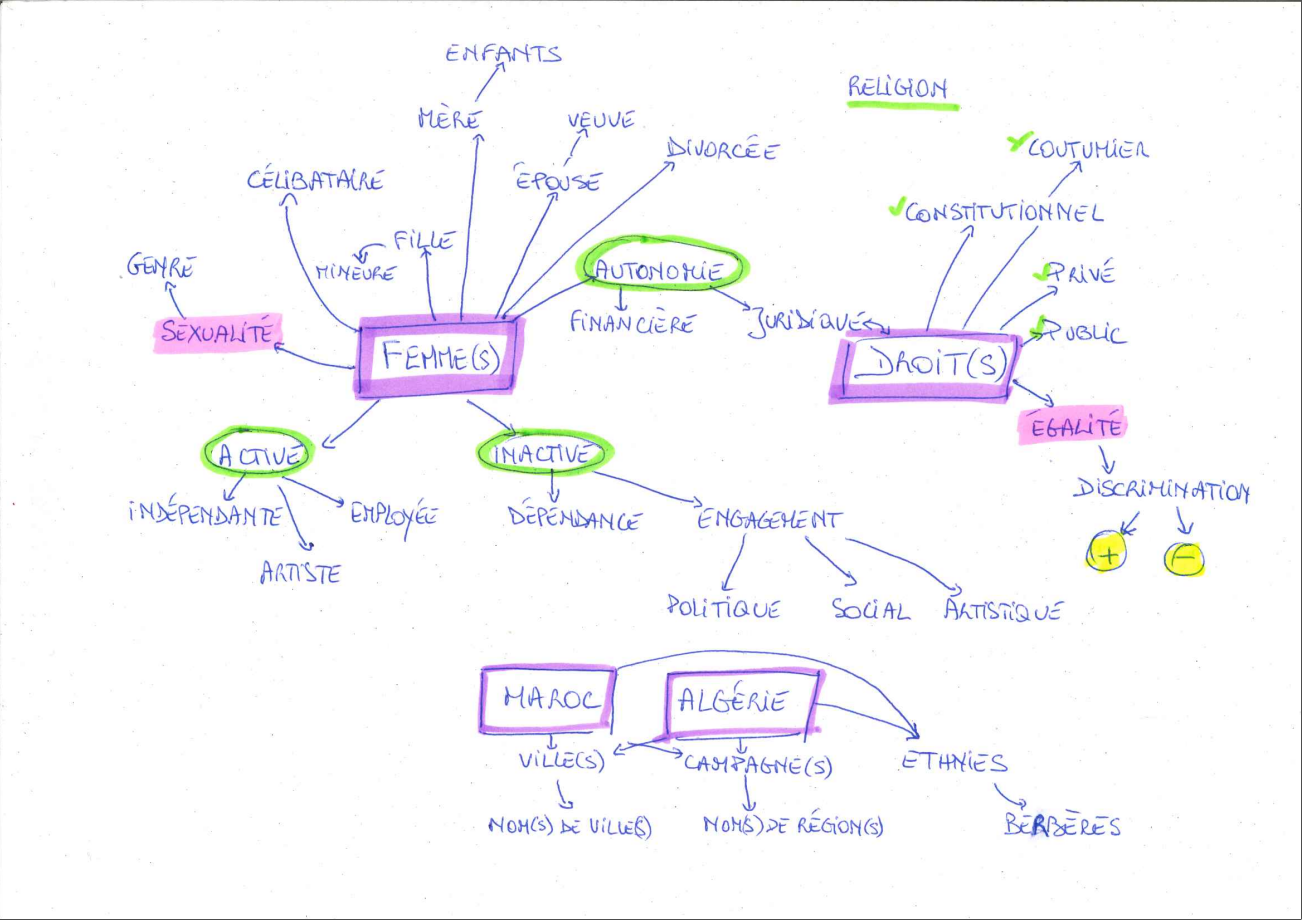 ENFANTS
RELIGION
MÈRE
VEUVE
DIVORCÉE
COUTUMIER
CÉLIBATAIRE
ÉPOUSE
CONSTITUTIONNEL
FILLE
MINEURE
GENRE
AUTONOMIE
PRIVÉ
SEXUALITÉ
FINANCIÈRE
JURIDIQUE
PUBLIC
FEMME(S)
DROIT(S)
ÉGALITÉ
ACTIVE
INACTIVE
DISCRIMINATION
INDÉPENDANTE
EMPLOYÉE
DÉPENDANCE
ENGAGEMENT
+
-
ARTISTE
POLITIQUE
SOCIAL
ARTISTIQUE
MAROC
ALGÉRIE
VILLE(S)
CAMPAGNE(S)
ETHNIES
NOM(S) DE VILLE(S)
NOM(S) DE RÉGION(S)
BERBÈRES